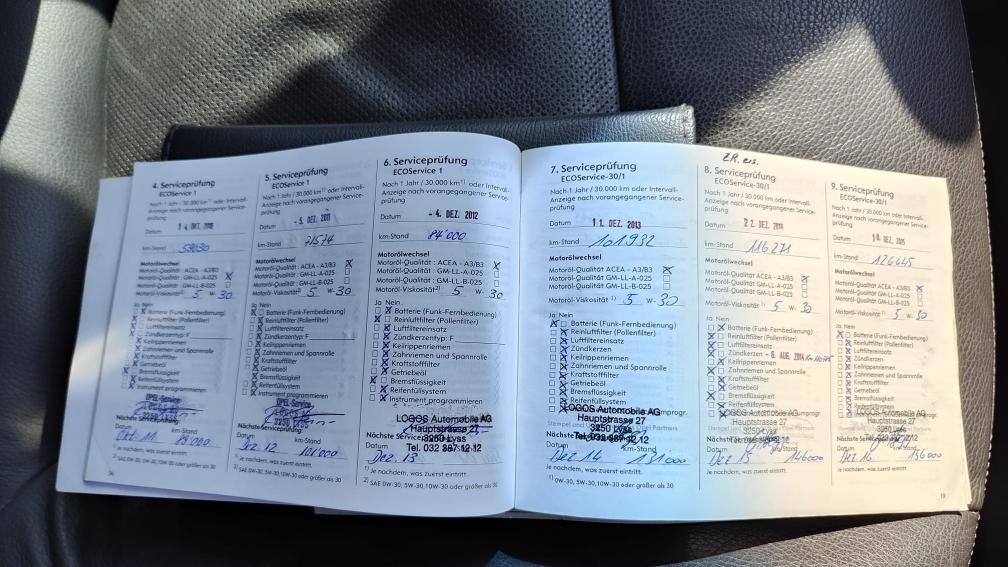 4. Serviceprüfung
ECOService 1
Nach 1 Jahr / 30.000 km¹⁾ oder Intervall-
Anzeige nach vorangegangener Service-
prüfung
Datum
km-Stand
Motorölwechsel
Motoröl-Qualität : ACEA - A3/B3 X
Motoröl-Qualität : GM-LL-A-025
Motoröl-Qualität : GM-LL-B-025
Motoröl-Viskosität²⁾ 5 W- 30
Ja Nein
Batterie (Funk-Fernbedienung)
Reinluftfilter (Pollenfilter)
Luftfiltereinsatz
Zündkerzentyp: F
Keilrippenriemen
Zahnriemen und Spannrolle
Kraftstofffilter
Getriebeöl
Bremsflüssigkeit
Reifenfüllsystem
Instrument programmieren
OPEL-Service
Nächste
Datum km-Stand
¹⁾ Je nachdem, was zuerst eintritt.
²⁾ SAE 0W-30, 5W-30, 10W-30 oder größer als 30
5. Serviceprüfung
ECOService 1
Nach 1 Jahr / 30.000 km¹⁾ oder Intervall-
Anzeige nach vorangegangener Service-
prüfung
Datum - 5. DEZ. 2011
km-Stand 71574
Motorölwechsel
Motoröl-Qualität : ACEA - A3/B3 X
Motoröl-Qualität : GM-LL-A-025
Motoröl-Qualität : GM-LL-B-025
Motoröl-Viskosität²⁾ 5 W- 30
Ja Nein
Batterie (Funk-Fernbedienung)
Reinluftfilter (Pollenfilter)
Luftfiltereinsatz
Zündkerzentyp: F
Keilrippenriemen
Zahnriemen und Spannrolle
Kraftstofffilter
Getriebeöl
Bremsflüssigkeit
Reifenfüllsystem
Instrument programmieren
OPEL-Service
3250 Lyss
Nächste
Datum km-Stand
Dez 12 101000
¹⁾ Je nachdem, was zuerst eintritt.
²⁾ SAE 0W-30, 5W-30, 10W-30 oder größer als 30
6. Serviceprüfung
ECOService 1
Nach 1 Jahr / 30.000 km¹⁾ oder Intervall-
Anzeige nach vorangegangener Service-
prüfung
Datum - 4. DEZ. 2012
km-Stand 84'000
Motorölwechsel
Motoröl-Qualität : ACEA - A3/B3 X
Motoröl-Qualität : GM-LL-A-025
Motoröl-Qualität : GM-LL-B-025
Motoröl-Viskosität²⁾ 5 W- 30
Ja Nein
Batterie (Funk-Fernbedienung)
Reinluftfilter (Pollenfilter)
Luftfiltereinsatz
Zündkerzentyp: F
Keilrippenriemen
Zahnriemen und Spannrolle
Kraftstofffilter
Getriebeöl
Bremsflüssigkeit
Reifenfüllsystem
Instrument programmieren
LOGOS Automobile AG
Hauptstrasse 27
3250 Lyss
Tel. 032 387 12 12
Nächste
Datum
Dez. 13
¹⁾ Je nachdem, was zuerst eintritt.
²⁾ SAE 0W-30, 5W-30, 10W-30 oder größer als 30
7. Serviceprüfung
ECOService-30/1
Nach 1 Jahr / 30.000 km oder Intervall-
Anzeige nach vorangegangener Service-
prüfung
Datum 11. DEZ. 2013
km-Stand 101.932
Motorölwechsel
Motoröl-Qualität ACEA - A3/B3 X
Motoröl-Qualität GM-LL-A-025
Motoröl-Qualität GM-LL-B-025
Motoröl-Viskosität ¹⁾ 5 W- 30
Ja Nein
Batterie (Funk-Fernbedienung)
Reinluftfilter (Pollenfilter)
Luftfiltereinsatz
Zündkerzen
Keilrippenriemen
Zahnriemen und Spannrolle
Kraftstofffilter
Getriebeöl
Bremsflüssigkeit
Reifenfüllsystem
LOGOS Automobile AG
Hauptstrasse 27
3250 Lyss
Tel. 032 387 12 12
Datum km-Stand
Dez 14 131000
Je nachdem, was zuerst eintritt.
¹⁾ 0W-30, 5W-30, 10W-30 oder größer als 30
8. Serviceprüfung
ECOService-30/1
Nach 1 Jahr / 30.000 km oder Intervall-
Anzeige nach vorangegangener Service-
prüfung
Datum 22. DEZ. 2014
km-Stand 116271
Motorölwechsel
Motoröl-Qualität ACEA - A3/B3 X
Motoröl-Qualität GM-LL-A-025
Motoröl-Qualität GM-LL-B-025
Motoröl-Viskosität ¹⁾ 5 W- 30
Ja Nein
Batterie (Funk-Fernbedienung)
Reinluftfilter (Pollenfilter)
Luftfiltereinsatz
Zündkerzen - 6. AUG. 2014
Keilrippenriemen
Zahnriemen und Spannrolle
Kraftstofffilter
Getriebeöl
Bremsflüssigkeit
Reifenfüllsystem
LOGOS Automobile AG
Hauptstrasse 27
3250 Lyss
Datum km-Stand
Dez 15 146000
Je nachdem, was zuerst eintritt.
9. Serviceprüfung
ECOService-30/1
Nach 1 Jahr / 30.000 km oder Intervall-
Anzeige nach vorangegangener Service-
prüfung
Datum DEZ. 2015
km-Stand 126645
Motorölwechsel
Motoröl-Qualität ACEA - A3/B3 X
Motoröl-Qualität GM-LL-A-025
Motoröl-Qualität GM-LL-B-025
Motoröl-Viskosität ¹⁾ 5 W- 30
Ja Nein
Batterie (Funk-Fernbedienung)
Reinluftfilter (Pollenfilter)
Luftfiltereinsatz
Zündkerzen
Keilrippenriemen
Zahnriemen und Spannrolle
Kraftstofffilter
Getriebeöl
Bremsflüssigkeit
Reifenfüllsystem
LOGOS Automobile AG
Hauptstrasse 27
3250 Lyss
Datum km-Stand
Dez 16 156000
Je nachdem, was zuerst eintritt.
19